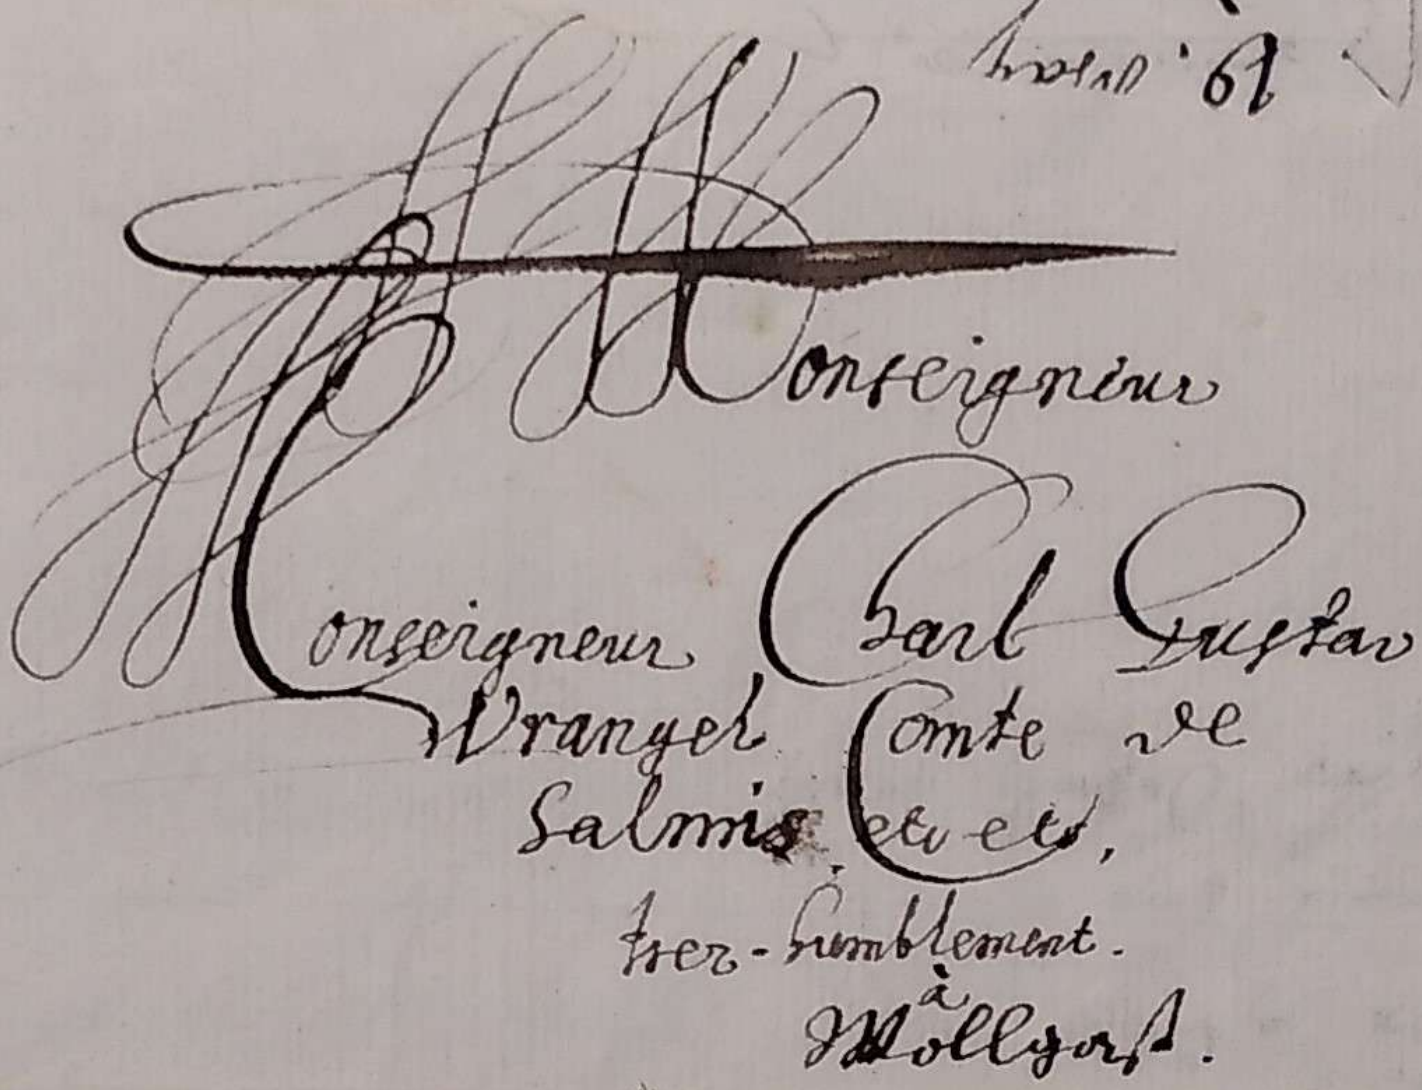 Monseigneur
Monseigneur Charl Gustav
Wrangel Comte de
Salmis etc etc,
tres-humblement.
à
Wollgast.